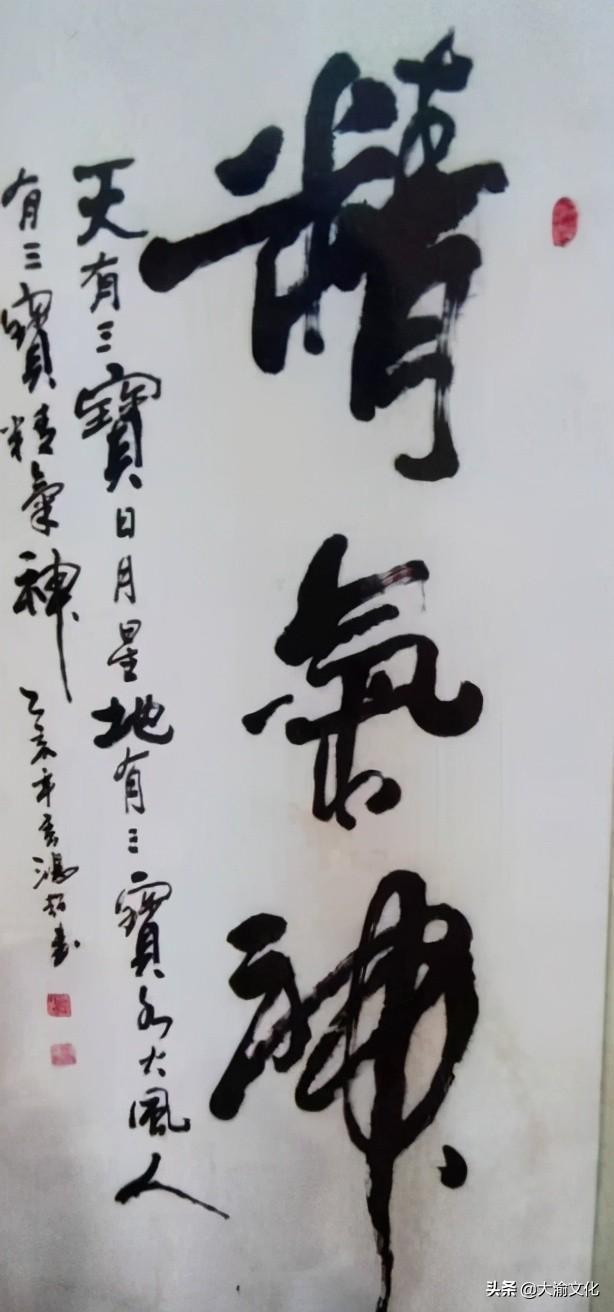 精氣神
天有三寶日月星地有三寶水火風人
有三寶精氣神乙亥年
頭条 @大渝文化